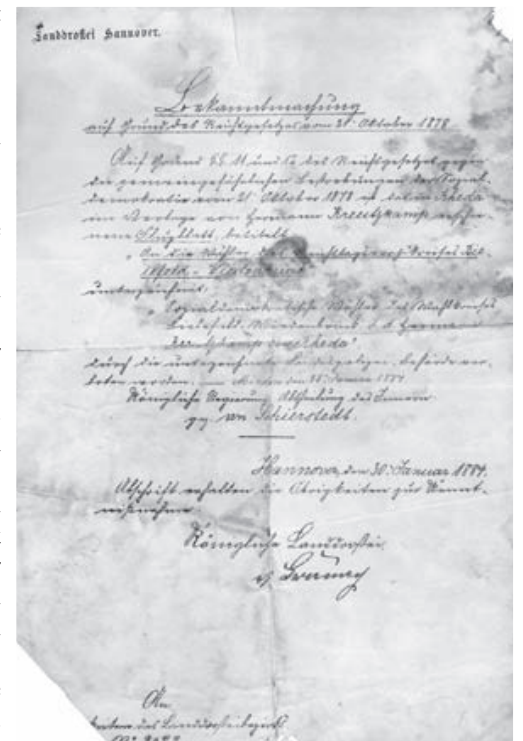 Landdrostei Hannover.
Bekanntmachung
auf Grund des Reichsgesetzes vom 21. Oktober 1878
Auf Grund §§. 11 und 12 des Reichsgesetzes gegen
die gemeingefährlichen Bestrebungen der Sozial-
demokratie vom 21. Oktober 1878 ist das in Rheda
im Verlage von Hermann Kreutzkamp erschie-
nene Flugblatt, betitelt
„An die Wähler des Reichstagswahlkreises Bie-
lefeld - Wiedenbrück
unterzeichnet:
„Sozialdemokratische Wähler des Wahlkreises
Bielefeld, Wiedenbrück Hermann
Kreutzkamp Rheda"
durch die unterzeichnete Landespolizei-behörde ver-
boten worden. Minden den Januar 1884
Königliche Regierung, Abtheilung des Innern.
gez. von Schierstedt.
Hannover, den 30. Januar 1884.
Abschrift erhalten die Obrigkeiten zur Kennt-
nißnahme
Königliche Landdrostei.
An
des Landdrosteibezirks